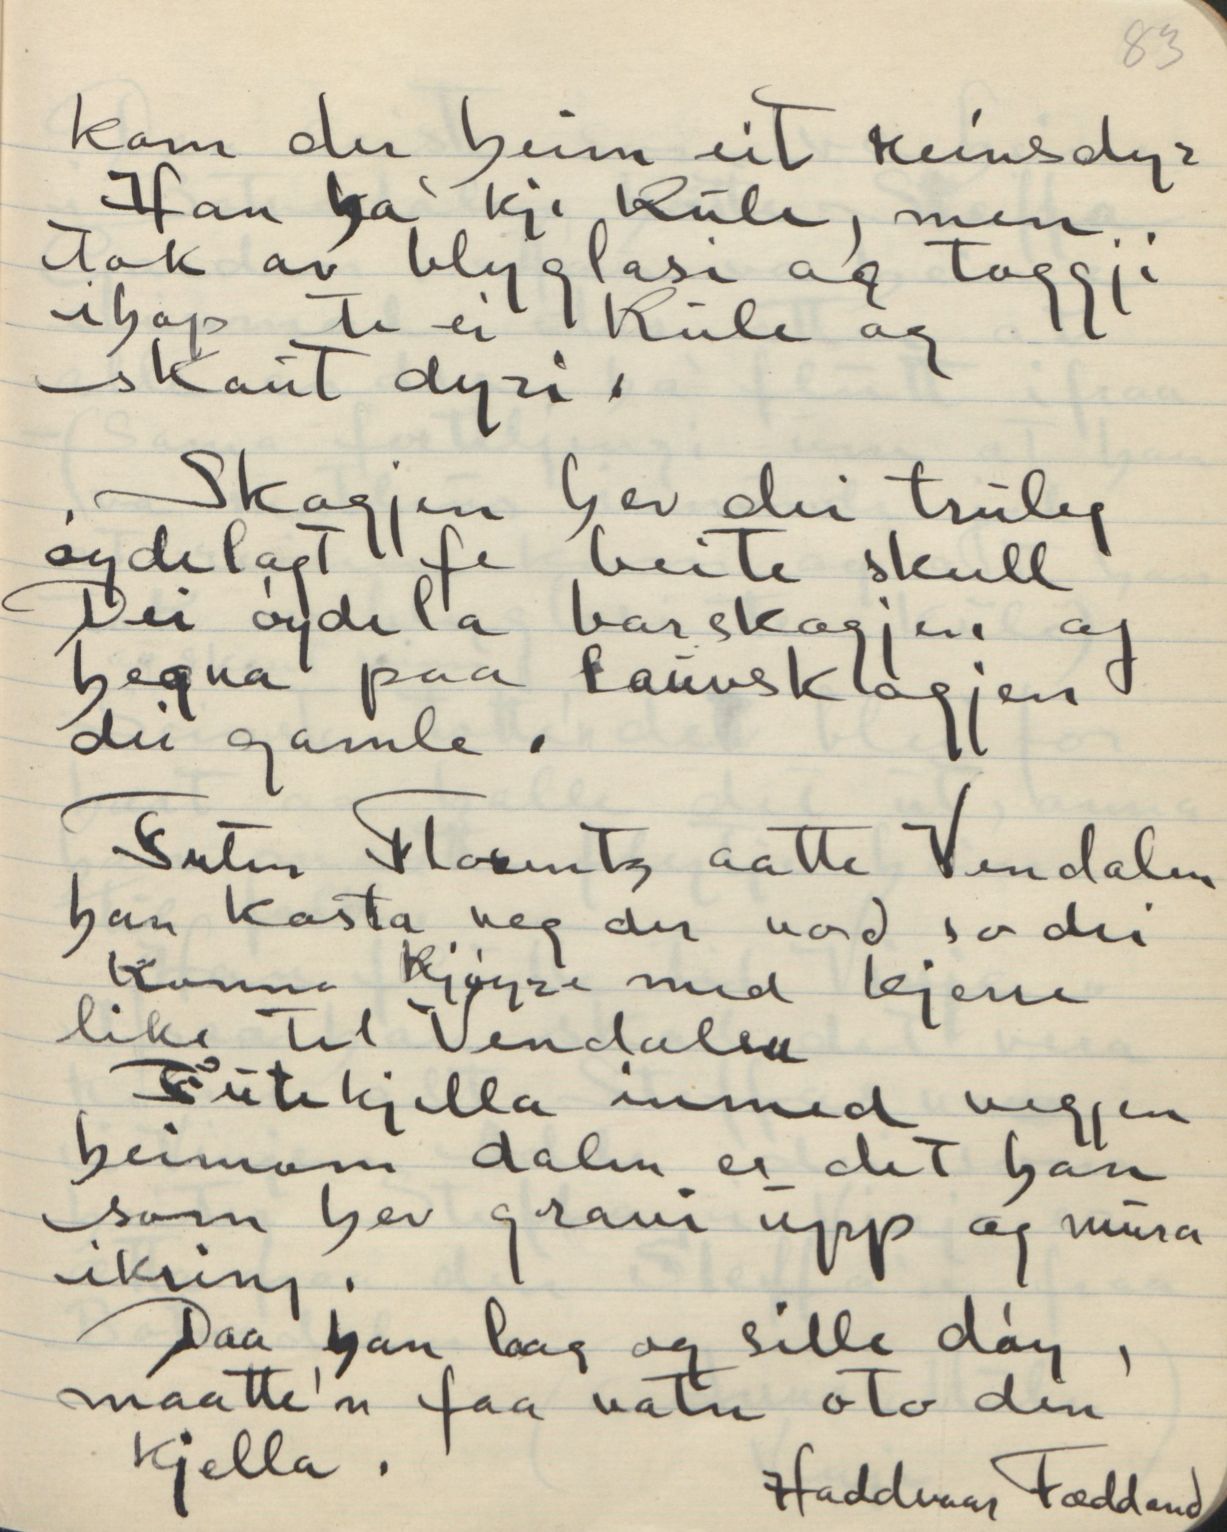 83
kom der heim eit reinsdyr
Han ha' kje Kule, men
tok av blyglasi og toggji
ihop te ei Kule og
skaut dyri.
Skogjen hev dei truleg
øydelagt fe beite skull
Dei øydela barskogjen og
hegna paa lauvskogjen
dei gamle.
Futen Florentz aatte Vendalen
han kasta veg der nord so dei
konna Kjøyre med kjerre
like til Vendalen
Futekjella innmed vegjen
heimom dalen er det han
som hev gravi upp og mura
ikring.
Daa han laag og sille døy,
maatte'n faa vatn oto den
kjella.
Haddvaar Fæddand